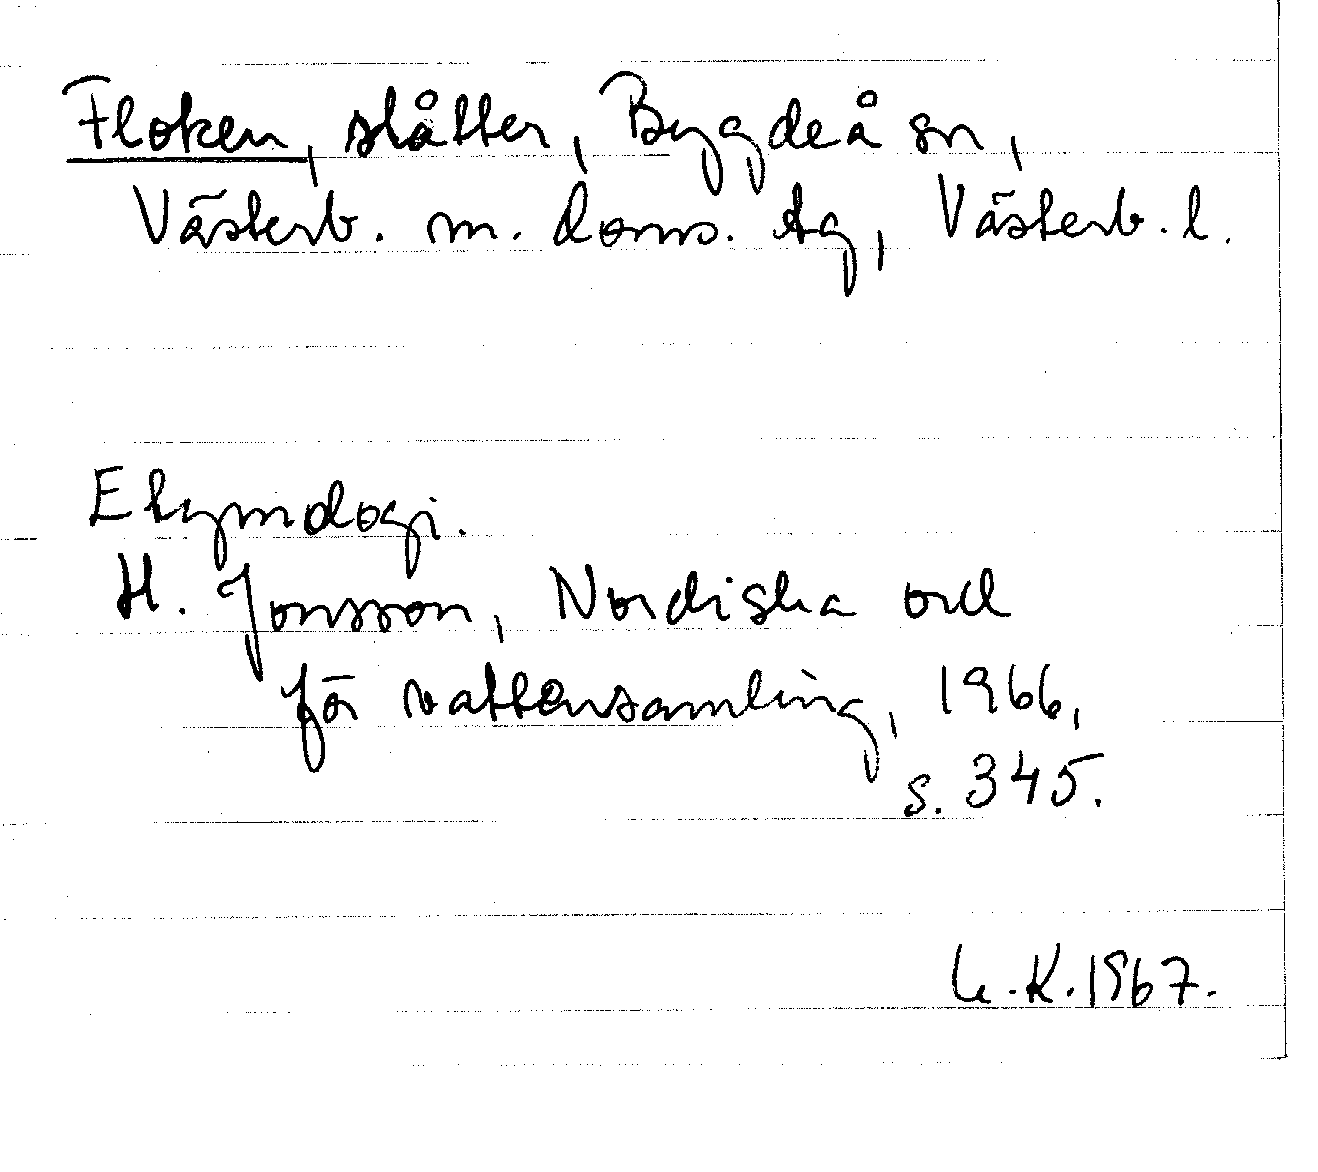 Floken, slåtter, Bygdeå sn,
Västerb. m. doms. tg, Västerb. l.
Etymologi.
H. Jonsson, Nordiska ord
för vattensamling, 1966,
s. 345.
K. 1967.